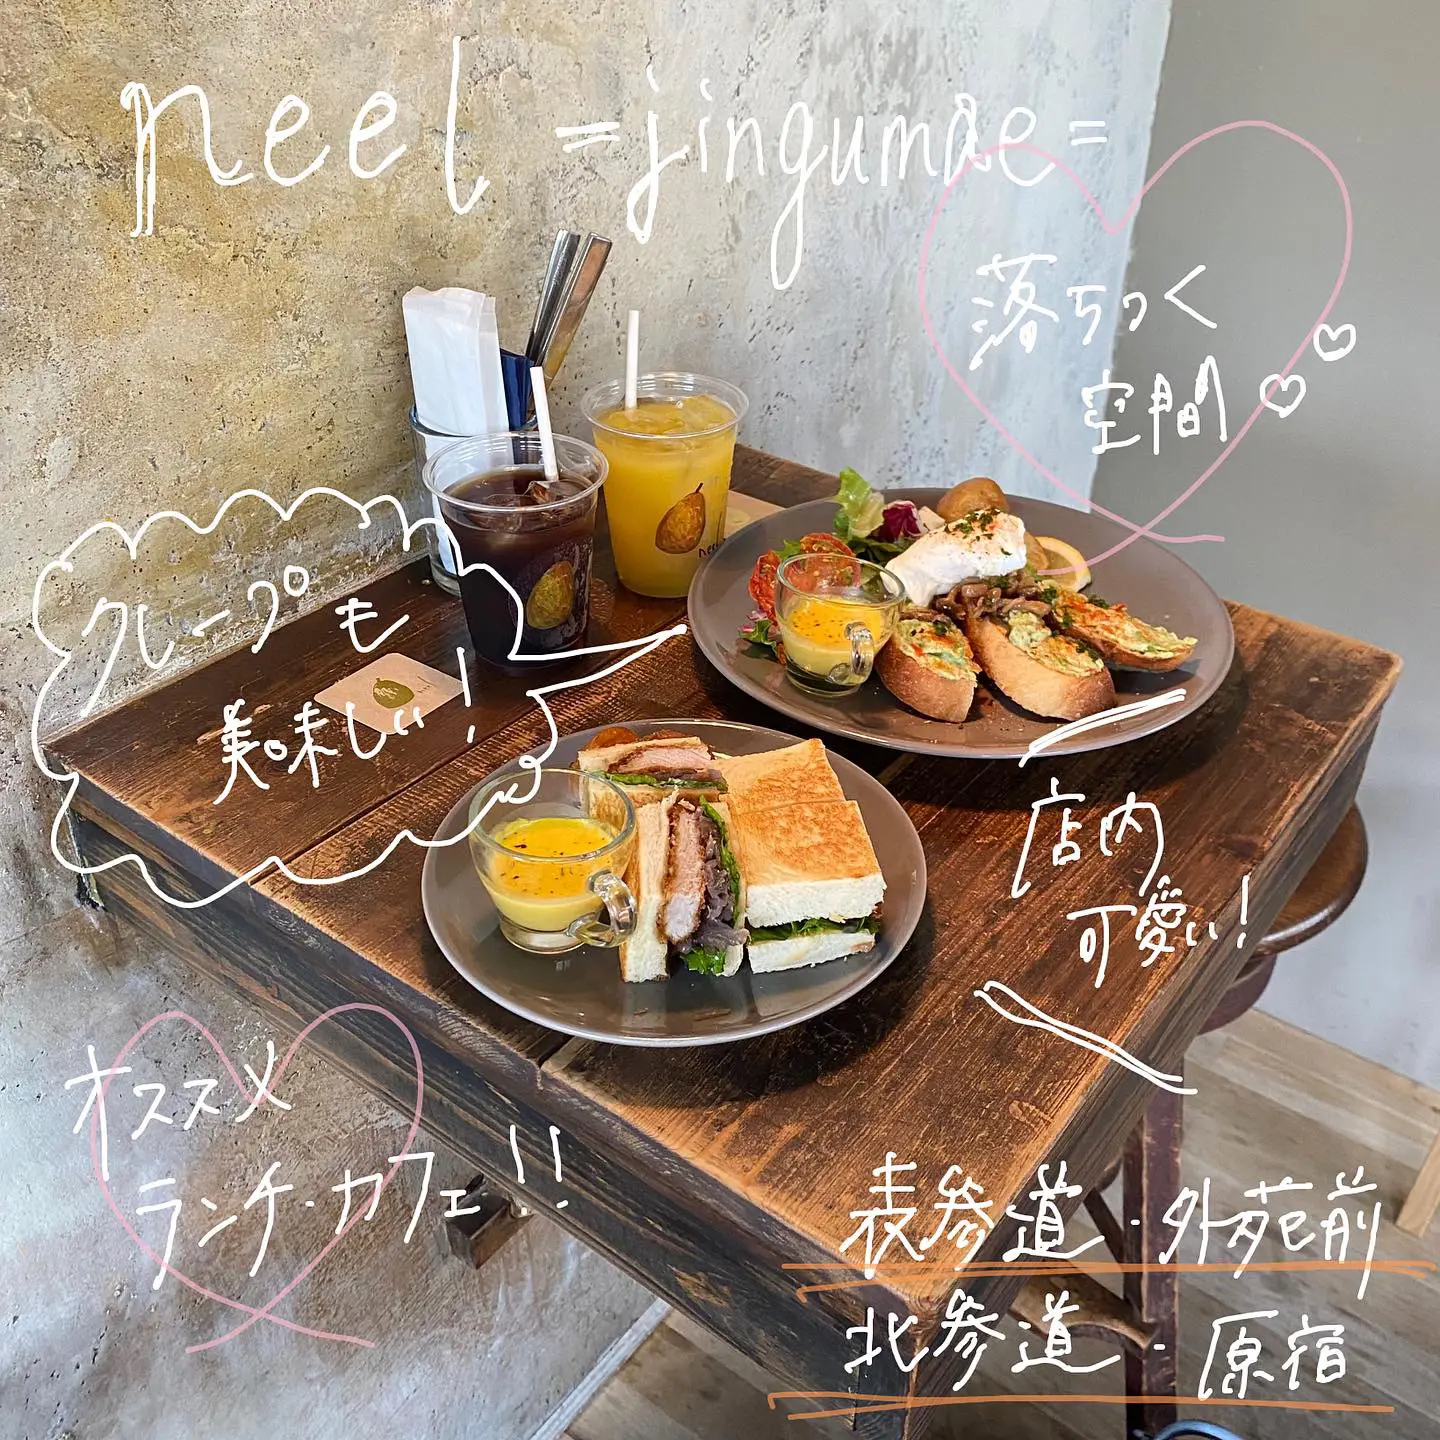 neel =jingumae=
落ちつく
空間♡♡
クレープも
美味しい!
店内
可愛い!
オススメ
ランチ・カフェ!!
表参道・外苑前
北参道・原宿
neel